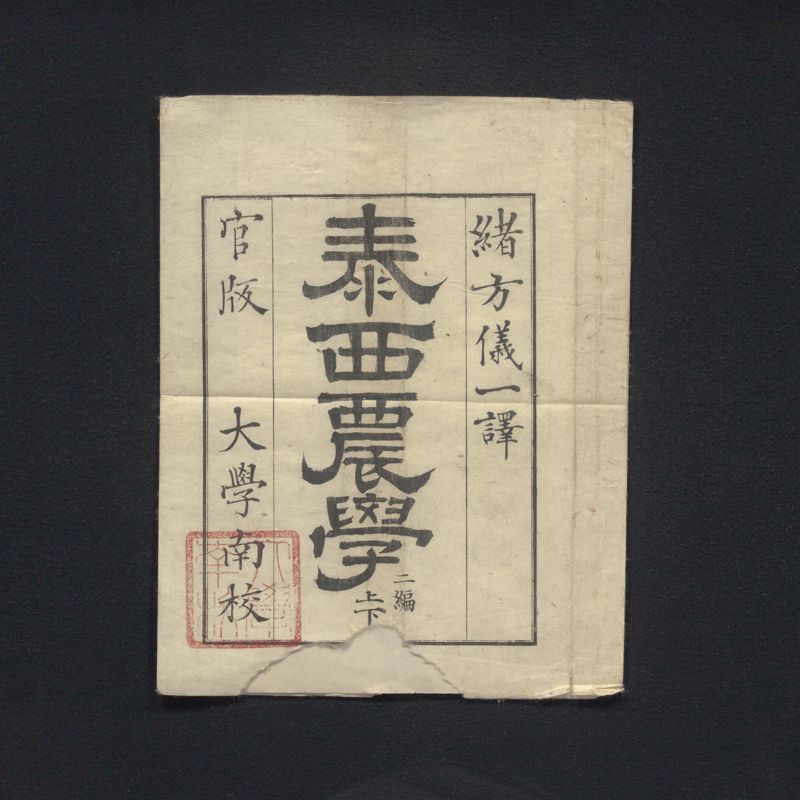 緒方儀一譯
泰西農學
二編
上下
官版 大學南校